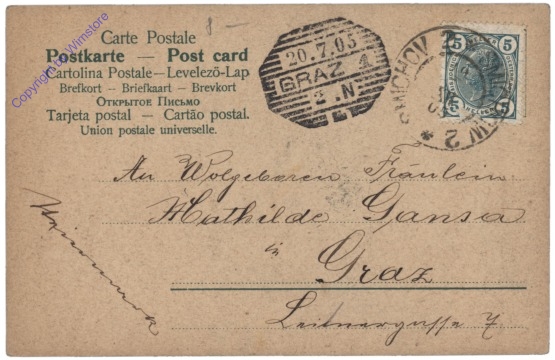 8 —
Carte Postale
Postkarte — Post card
Cartolina Postale — Levelező-Lap
Brefkort — Briefkaart — Brevkort
Открытое Письмо
Tarjeta postal — Cartão postal.
Union postale universelle.
Copyright by Wimstore
20.7.05
GRAZ 1
2.N
SMICHOV 2
SMICHOW 2
5 5
5 5
An Wolgeboren Fräulein
Mathilde Gansa
in
Graz
Leitnergasse 7